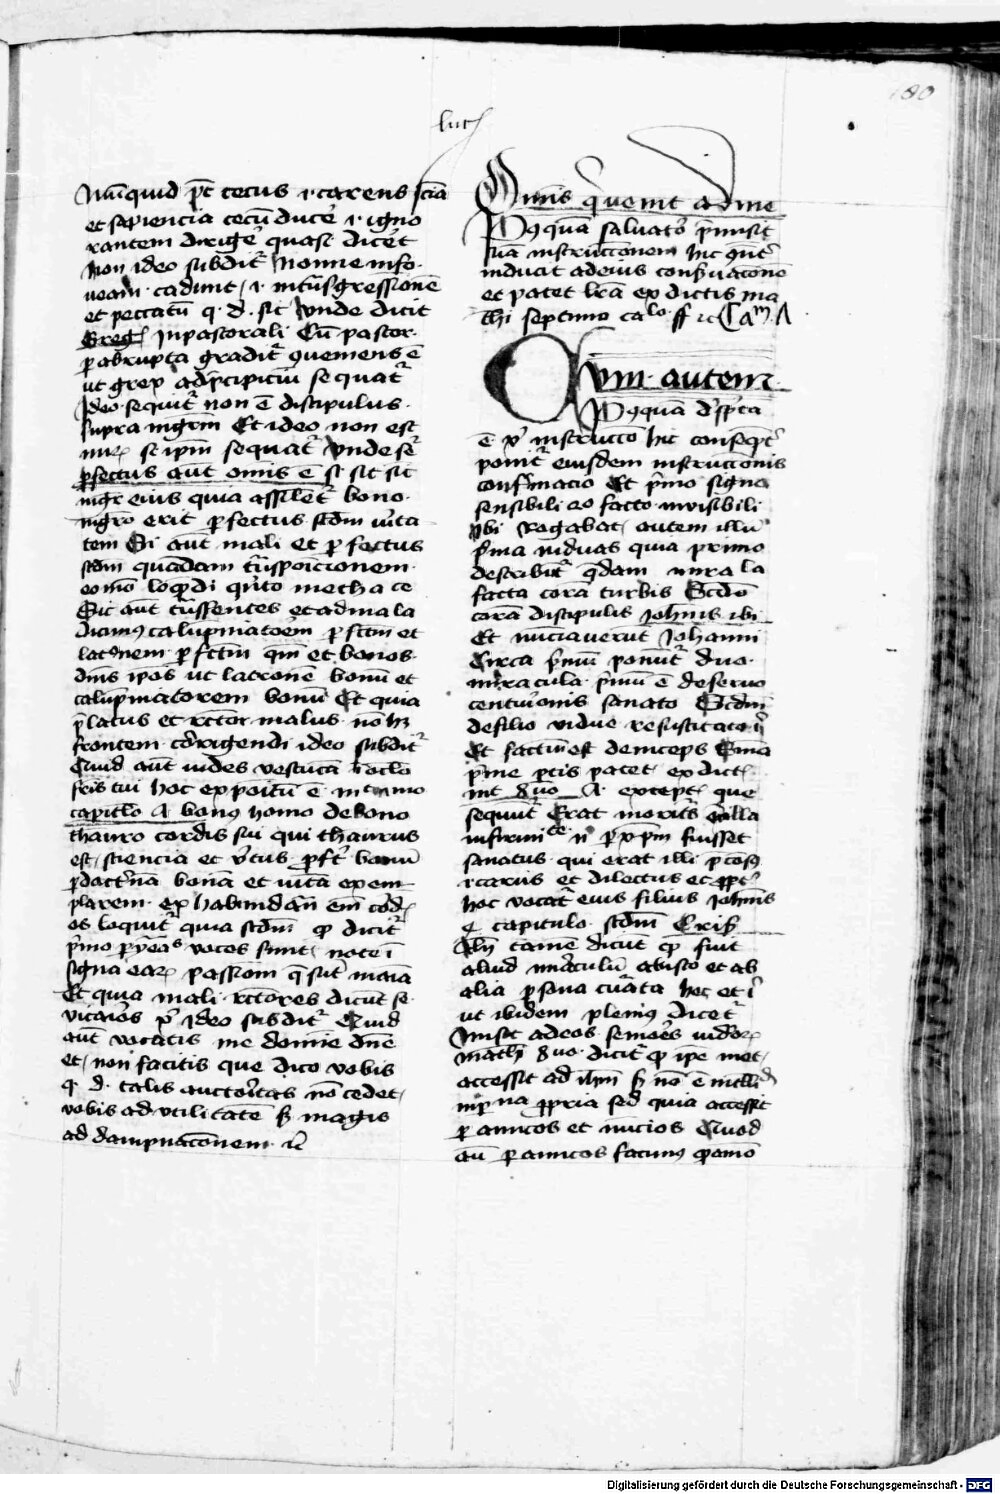 180
luc
Nūquid pt̄ cecus ⁊ carens sciā
et sapiencia cecū ducē ⁊ igno
rantem dirigē quasi dicēt
Non ideo subditᷣ Nonne in fo
ueam cadunt ⁊ in tᷤgressionē
et peccatū q. d. sic Vnde dicit
Greg In pastorali Cū pastor
ꝑ abrupta graditᷣ ꝯuemens ē
ut grex ad p̄cipiciū sequatᷣ
Ideo sequitᷣ non ē discipulus
supra mgr̄m Et ideo non est
sequatᷣ Vnde
ꝑfectus aūt omīs ē si sit sic
mgr̄ eius quia assilet᷑ bono
mgr̄o erit ꝑfectus scdm̄ v̄ita
tem Si aūt mali et ꝑfectus
scdm̄ quādam
Sic aūt et ad mala
dicimꝯ calūpniatoēm ꝑfctm̄ et
latꝯnem ꝑfctm̄ qm̄ et bonos
dm̄s ip̄os ut latronē bonū et
calūpniatorem bonū Et quia
p̄latus et rector malus nō hꝫ
frontem corrigendi ideo subditᷣ
Quid aūt uides vestucā oclo
fr̄is tui hoc expoitū ē
capitlo A bonꝯ homo de bono
thauro cordis sui qui thaurus
est sciencia et v̄tus ꝓfert bonū
doctr̄nā bonā et uitā exem
plarem ex habundan em̄ cord
os loquitᷣ quia scdm̄ ꝙ dicitᷣ
p̄mo ꝑyeas voces sunt note
signa eaꝝ passionū q̄ sūt in aīa
Et quia mali rectores dicūt se
vicarios xᷣ ideo subditᷣ Quid
aūt vocatis me domine dn̄e
et non facitis que dico vobis
q. d. talis auctoritas nō cedet
vobis ad vtilitatē sꝫ magis
ad dampnacōnem
Omnis q̄ uenit ad me
Pꝯquā saluatoᷣ p̄misit
suā instruccionem hic ꝯnt̄
inducit ad eius conſuacōnē
et patet lr̄a ex dictis ma
thi septimo calo
Cum autem
Pꝯquā dc̄pta
ē xᷣ instruccō hic conseqnt̄
ponitᷣ eiusdem instruccionis
confirmacio Et p̄mo signo
sensibili 2o facto invisibili
ibi Rogabat autem illū
p̄ma in duas quia primo
describitᷣ q̄dam mira la
facta corā turbis Scdō
corā discipulis Johīs ibi
Et nūciauerūt Johanni
Circa p̄mū ponūtᷣ duo
miracula p̄mū ē de seruo
centurionis sanato Scdm̄
de filio vidue resuscitato
Et factum est deinceps
p̄me ꝑtis patet ex dict
mt 8uo A except que
sequūtᷣ Erat moritᷣs
ꝑ xpm fuisset
sanatus qui erat illi p̄cōs
⁊ carus et dilectus et ꝓpt
hoc vocatᷣ eius filius Johīs
4 capitulo scdm̄ Cris
Alij tamē dicūt ꝙ fuit
aliud mīaculū ab isto et ab
alia ꝑsona cūata hec et
ut ibidem plenius dicetᷣ
Misit ad eos semoēs iudeoꝝ
math 8uo dicitᷣ ꝙ ip̄e met
accessit ad ihm̄ sꝫ nō ē intlld
in ꝓpria sed quia accessit
ꝑ amicos et nūcios Quod
aū ꝑ amicos facimꝯ
Digitalisierung gefördert durch die Deutsche Forschungsgemeinschaft - DFG